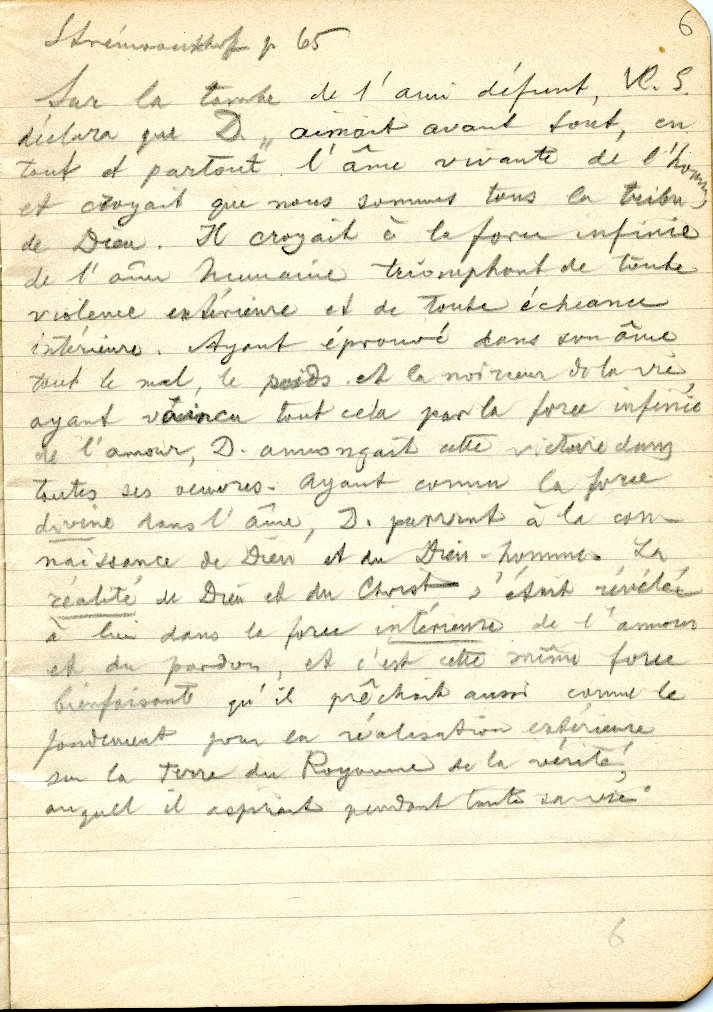 6
Strémooukhof p 65
Sur la tombe de l'ami défunt, Vl. S.
déclara que D. „ aimait avant tout, en
tout et partout l'âme vivante de l'homme,
et croyait que nous sommes tous la tribu
de Dieu. Il croyait à la force infinie
de l'âme humaine triomphant de toute
violence extérieure et de toute échéance
intérieure. Ayant éprouvé dans son âme
tout le mal, le poids et la noirceur de la vie
ayant vaincu tout cela par la force infinie
de l'amour, D. annonçait cette victoire dans
toutes ses oeuvres. Ayant connu la force
divine dans l'âme, D. parvint à la con-
naissance de Dieu et du Dieu-homme. La
réalité de Dieu et du Christ s'était révélée
à lui dans la force intérieure de l'amour
et du pardon, et c'est cette même force
bienfaisante qu'il prêchait aussi comme le
fondement pour la réalisation extérieure
sur la terre du Royaume de la vérité,
auquel il aspirait pendant toute sa vie"
6